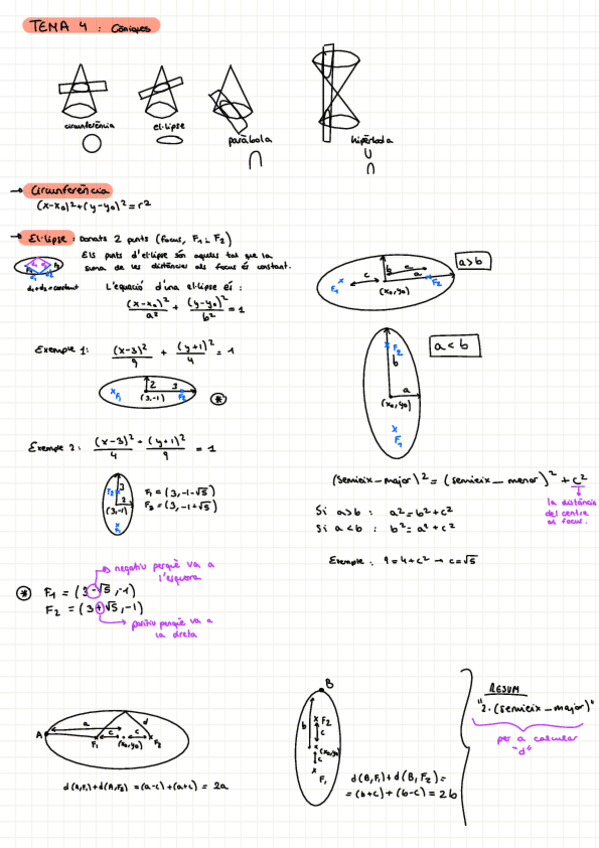 TEMA 4 : Còniques
circumferència
el·lipse
paràbola
hipèrbola
→ Circumferència
(x-x₀)²+(y-y₀)²=r²
→ El·lipse : Donats 2 punts (focus, F₁ i F₂)
Els punts d'el·lipse són aquells tal que la
suma de les distàncies als focus és constant.
d₁+d₂=constant
L'equació d'una el·lipse és :
(x-x₀)²/a² + (y-y₀)²/b² = 1
b
c
a
F₁
F₂
(x₀,y₀)
a>b
Exemple 1: (x-3)²/9 + (y+1)²/4 = 1
2
3
F₁
(3,-1)
F₂
*
F₂
b
a
(x₀,y₀)
F₁
a<b
Exemple 2: (x-3)²/4 + (y+1)²/9 = 1
3
F₂
2
(3,-1)
F₁
F₁ = (3,-1-√5)
F₂ = (3,-1+√5)
(semieix_major)² = (semieix_menor)² + c²
la distància
del centre
al focus.
Si a>b : a²=b²+c²
Si a<b : b²=a²+c²
Exemple : 9=4+c² → c=√5
negatiu perquè va a
l'esquerra
* F₁ = (3-√5,-1)
F₂ = (3+√5,-1)
positiu perquè va a
la dreta
A
a
d
c
c
F₁
(x₀,y₀)
F₂
d(A,F₁)+d(A,F₂) = (a-c)+(a+c) = 2a
B
b
F₂
c
(x₀,y₀)
c
F₁
d(B,F₁)+d(B,F₂)=
=(b+c)+(b-c)=2b
RESUM
"2·(semieix_major)"
per a calcular
"d"